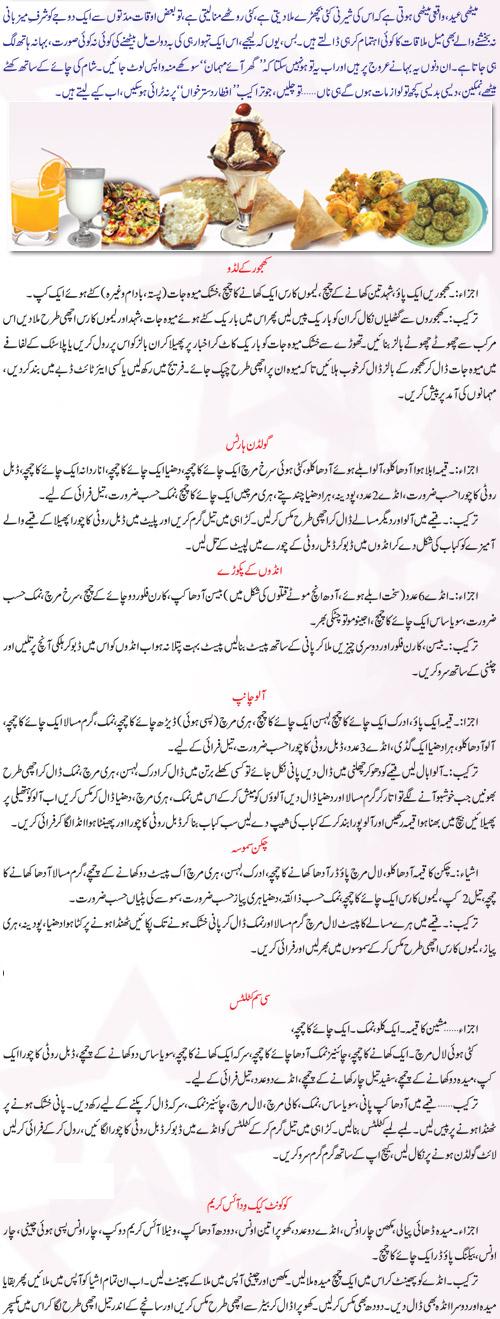 میٹھی عید، واقعی میٹھی ہوتی ہے کہ اس کی شیرینی کئی بچھڑے ملا دیتی ہے، کئی روٹھے منا لیتی ہے، تو بعض اوقات مدتوں سے ایک دوجے کو شرفِ میزبانی
نہ بخشنے والے بھی میل ملاقات کا کوئی اہتمام کر ہی ڈالتے ہیں۔ بس، یوں کہہ لیجیے، اس ایک تہوار ہی کی بہ دولت مل بیٹھنے کی کوئی نہ کوئی صورت، بہانہ ہاتھ لگ
ہی جاتا ہے۔ ان دنوں یہ بہانے عروج پر ہیں اور اب یہ تو ہو نہیں سکتا کہ ’’گھر آئے مہمان‘‘ سوکھے منہ واپس لوٹ جائیں۔ شام کی چائے کے ساتھ کھٹے
میٹھے، نمکین، دیسی بدیسی کچھ تو لوازمات ہوں گے ہی ناں......تو چلیں، جو تراکیب ’’افطار دسترخواں‘‘ پر نہ ٹرائی ہو سکیں، اب کیے لیتے ہیں۔
کھجور کے لڈو
اجزاء:۔ کھجوریں ایک پاؤ، شہد تین کھانے کے چمچ، لیموں کا رس ایک کھانے کا چمچ، خشک میوہ جات (پستہ، بادام وغیرہ) کٹے ہوئے ایک کپ۔
ترکیب:۔ کھجوروں سے گٹھلیاں نکال کر ان کو باریک پیس لیں پھر اس میں باریک کٹے ہوئے میوہ جات، شہد اور لیموں کا رس اچھی طرح ملا دیں اس
مرکب سے چھوٹے چھوٹے بالز بنائیں۔ تھوڑے سے خشک میوہ جات کو باریک کاٹ کر اخبار پر پھیلا کر ان بالز کو اس پر رول کریں یا پلاسٹک کے لفافے
میں میوہ جات ڈال کر کھجور کے بالز ڈال کر خوب ہلائیں تاکہ میوہ ان پر اچھی طرح چپک جائے۔ فریج میں رکھ لیں یا کسی ایئر ٹائٹ ڈبے میں بند کر دیں،
مہمانوں کی آمد پر پیش کریں۔
گولڈن ہارٹس
اجزاء:۔ قیمہ ابلا ہوا آدھا کلو، آلو ابلے ہوئے آدھا کلو، کٹی ہوئی سرخ مرچ ایک چائے کا چمچہ، دھنیا ایک چائے کا چمچہ، انار دانہ ایک چائے کا چمچہ، ڈبل
روٹی کا چورا حسب ضرورت، انڈے 2 عدد، پودینہ، ہرا دھنیا چند پتے، ہری مرچیں ایک چائے کا چمچ، نمک حسب ضرورت، تیل فرائی کے لیے۔
ترکیب:۔ قیمے میں آلو اور دیگر مسالے ڈال کر اچھی طرح مکس کر لیں۔ کڑاہی میں تیل گرم کریں اور پلیٹ میں ڈبل روٹی کا چورا پھیلا کے قیمے والے
آمیزے کو کباب کی شکل دے کر انڈوں میں ڈبو کر ڈبل روٹی کے چورے میں لپیٹ کے تل لیں۔
انڈوں کے پکوڑے
اجزاء:۔ انڈے 6 عدد (سخت ابلے ہوئے، آدھ انچ موٹے قتلوں کی شکل میں) بیسن آدھا کپ، کارن فلور دو چائے کے چمچ، سرخ مرچ، نمک حسب
ضرورت، سویا ساس ایک چائے کا چمچ، اجینو موتو چٹکی بھر۔
ترکیب:۔ بیسن، کارن فلور اور دوسری چیزیں ملا کر پانی کے ساتھ پیسٹ بنا لیں پیسٹ بہت پتلا نہ ہو اب انڈوں کو اس میں ڈبو کر ہلکی آنچ پر تلیں اور
چٹنی کے ساتھ سرو کریں۔
آلو چانپ
اجزاء:۔ قیمہ ایک پاؤ، ادرک ایک چائے کا چمچ، لہسن ایک چائے کا چمچ، ہری مرچ (پسی ہوئی) ڈیڑھ چائے کا چمچہ، نمک، گرم مسالا ایک چائے کا چمچہ،
آلو آدھا کلو، ہرا دھنیا ایک گڈی، انڈے 3 عدد، ڈبل روٹی کا چورا حسب ضرورت، تیل فرائی کے لیے۔
ترکیب:۔ آلو ابال لیں قیمے کو دھو کر چھلنی میں ڈال دیں پانی نکل جائے تو کسی کھلے برتن میں ڈال کر ادرک لہسن، ہری مرچ، نمک ڈال کر اچھی طرح
بھونیں جب خوشبو آنے لگے تو اتار کر گرم مسالا اور دھنیا ڈال دیں آلوؤں کو میش کر کے اس میں نمک، ہری مرچ، دھنیا ڈال کر مکس کریں اب آلو کو ہتھیلی پر
پھیلائیں بیچ میں بھنا ہوا قیمہ رکھیں اور آلو پورا بند کر کے کباب کی شیپ دے لیں سب کباب بنا کر ڈبل روٹی کا چورا اور پھینٹا ہوا انڈا لگا کر فرائی کریں۔
چکن سموسہ
اشیاء:۔ چکن کا قیمہ آدھا کلو، لال مرچ پاؤڈر آدھا کھانے کا چمچہ، ادرک، لہسن، ہری مرچ اک پیسٹ دو کھانے کے چمچے، گرم مسالا آدھا کھانے کا
چمچہ، تیل 2 کپ، لیموں کا رس ایک کھانے کا چمچہ، نمک حسب ذائقہ، دھنیا ہری پیاز حسب ضرورت، سموسے کی پٹیاں حسب ضرورت۔
ترکیب:۔ قیمے میں ہرے مسالے کا پیسٹ لال مرچ گرم مسالا اور نمک ڈال کر پانی خشک ہونے تک پکائیں ٹھنڈا ہونے پر کٹا ہوا دھنیا، پودینہ، ہری
پیاز، لیموں کا رس اچھی طرح مکس کر کے سموسوں میں بھر لیں اور فرائی کریں۔
سی سم کٹلٹس
اجزاء......مشین کا قیمہ۔ ایک کلو، نمک۔ ایک چائے کا چمچہ،
کٹی ہوئی لال مرچ۔ ایک کھانے کا چمچہ، چائنیز نمک آدھا چائے کا چمچہ، سرکہ ایک کھانے کا چمچہ، سویا ساس دو کھانے کے چمچے، ڈبل روٹی کا چورا ایک
کپ، میدہ دو کھانے کے چمچے، سفید تیل چار کھانے کے چمچے، انڈے دو عدد، تیل فرائی کے لیے۔
ترکیب......قیمے میں آدھا کپ پانی، سویا ساس، نمک، کالی مرچ، لال مرچ، چائنیز نمک، سرکہ ڈال کر پکنے کے لیے رکھ دیں۔ پانی خشک ہونے پر
ٹھنڈا ہونے پر پیس لیں۔ لمبے لمبے کٹلٹس بنا لیں۔ کڑاہی میں تیل گرم کر کے کٹلٹس کو انڈے میں ڈبو کر ڈبل روٹی کا چورا لگائیں، رول کر کے فرائی کر لیں
لائٹ گولڈن ہونے پر نکال لیں، کیچ اپ کے ساتھ گرم گرم سرو کریں۔
کوکونٹ کیک ود آئس کریم
اجزاء۔ میدہ ڈھائی پیالی، مکھن چار اونس، انڈے دو عدد، کھوپرا تین اونس، دودھ آدھا کپ، ونیلا آئس کریم دو کپ، چار اونس پسی ہوئی چینی، چار
اونس، بیکنگ پاؤڈر ایک چائے کا چمچ۔
ترکیب۔ انڈے کو پھینٹ کر اس میں ایک چمچ میدہ ملا لیں۔ مکھن اور چینی آپس میں ملا کے پھینٹ لیں۔ اب ان تمام اشیا کو آپس میں ملائیں پھر بقایا
میدہ اور دوسرا انڈہ بھی ڈال دیں۔ دودھ بھی مکس کر لیں۔ کھوپرا ڈال کر بیٹر سے اچھی طرح مکس کریں اور سانچے کے اندر تیل اچھی طرح لگا کر اس میں مکسچر